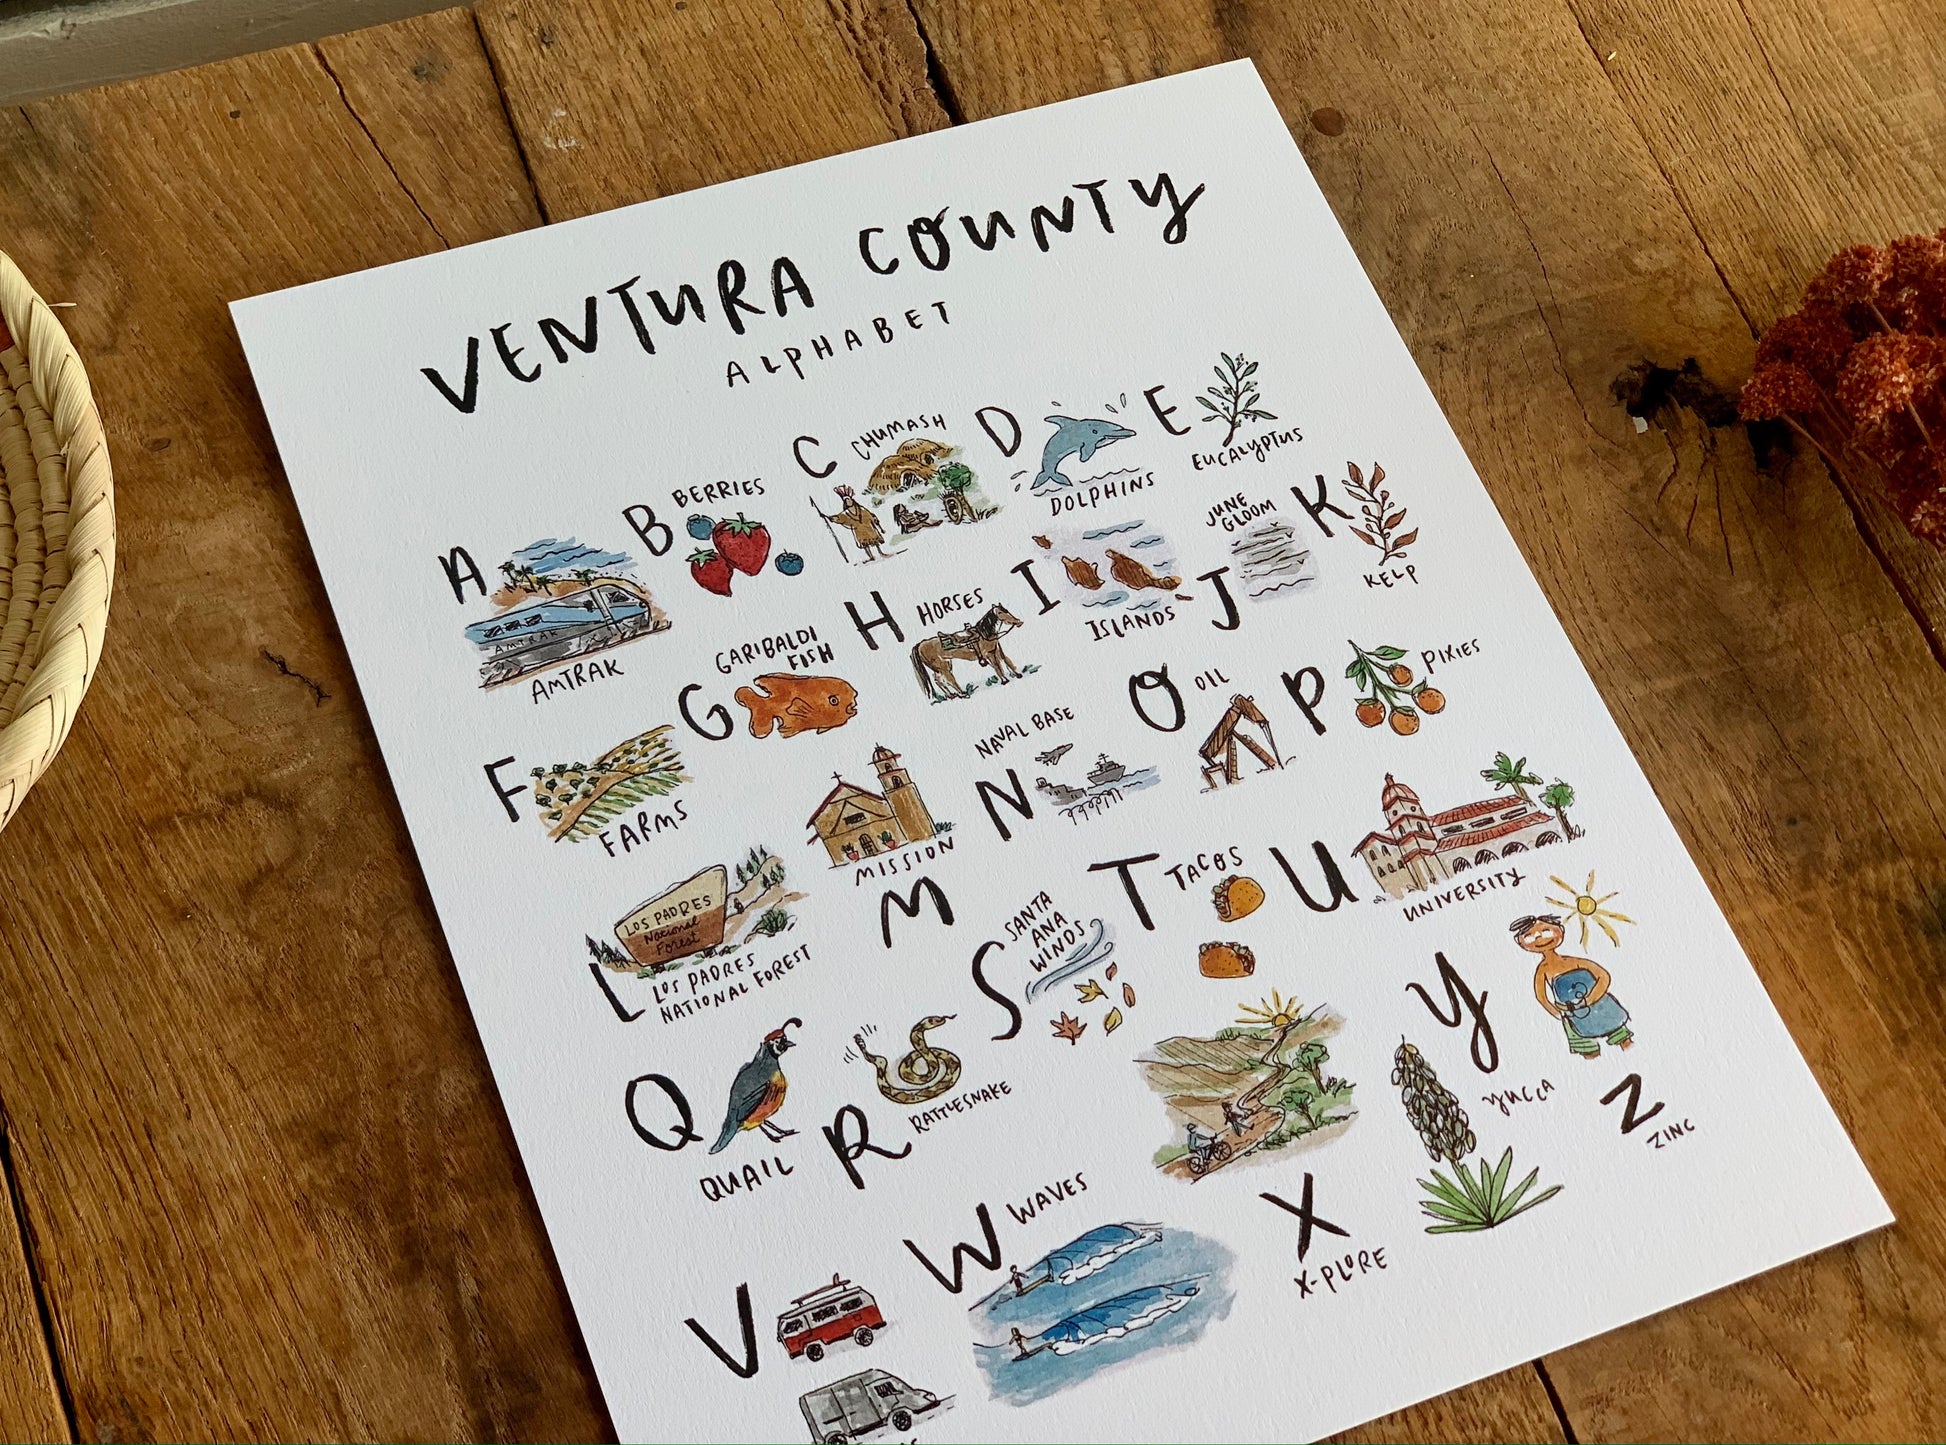 VENTURA COUNTY
ALPHABET
A
AMTRAK
AMTRAK
B
BERRIES
C
CHUMASH
D
DOLPHINS
E
EUCALYPTUS
F
FARMS
G
GARIBALDI
FISH
H
HORSES
I
ISLANDS
J
JUNE
GLOOM
K
KELP
L
LOS PADRES
National
Forest
LOS PADRES
NATIONAL FOREST
M
MISSION
N
NAVAL BASE
O
OIL
P
PIXIES
Q
QUAIL
R
RATTLESNAKE
S
SANTA
ANA
WINDS
T
TACOS
U
UNIVERSITY
V
W
WAVES
X
X-PLORE
Y
YUCCA
Z
ZINC